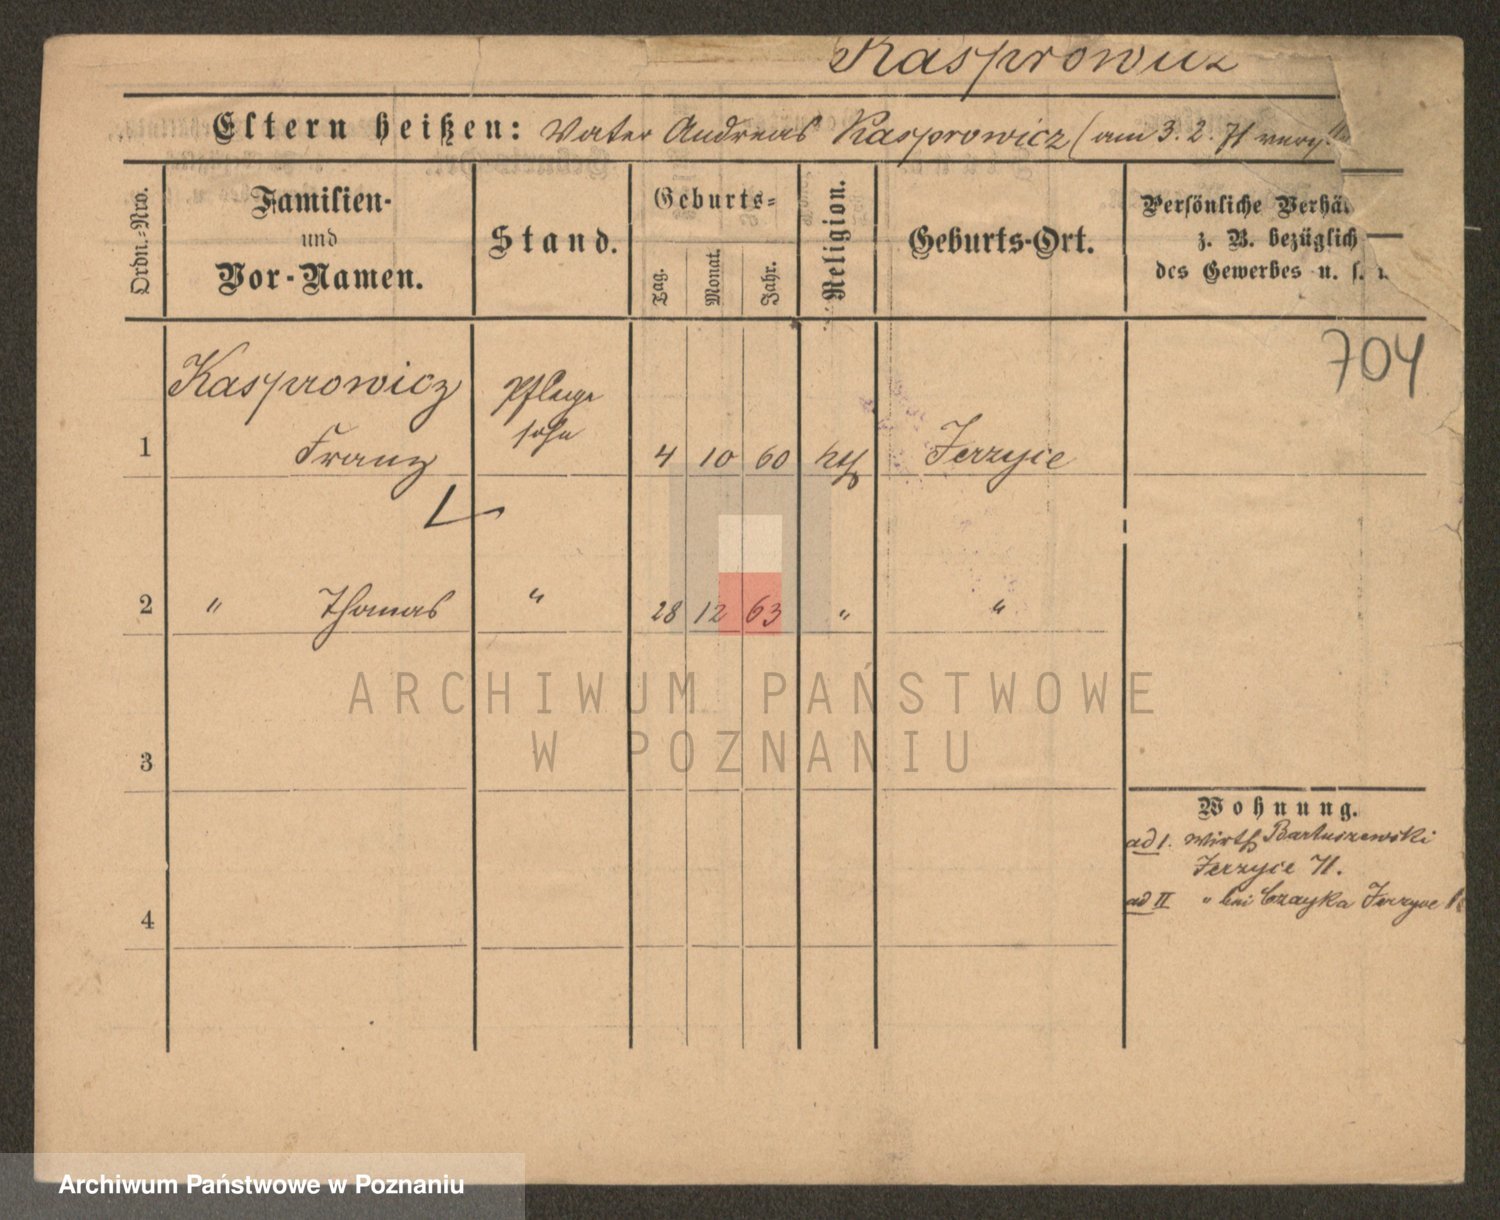 Kasprowicz
Eltern heißen: Vater Andreas Kasprowicz (am 3. 2. 71
Ordn.-Nro.
Familien-
und
Vor-Namen.
Stand.
Geburts-
Tag.
Monat.
Jahr.
Religion.
Geburts-Ort.
Persönliche Verhä
z. B. bezüglich
des Gewerbes u. s.
704
1 Kasprowicz Franz Pflege sohn 4 10 60 kth Jerzyce
2 " Thomas " 28 12 63 " "
3
4
Wohnung.
ad I. Wirth Bartuszewski
Jerzyce 71.
ad II " bei Czayka Jerzyce
ARCHIWUM PAŃSTWOWE
W POZNANIU
Archiwum Państwowe w Poznaniu